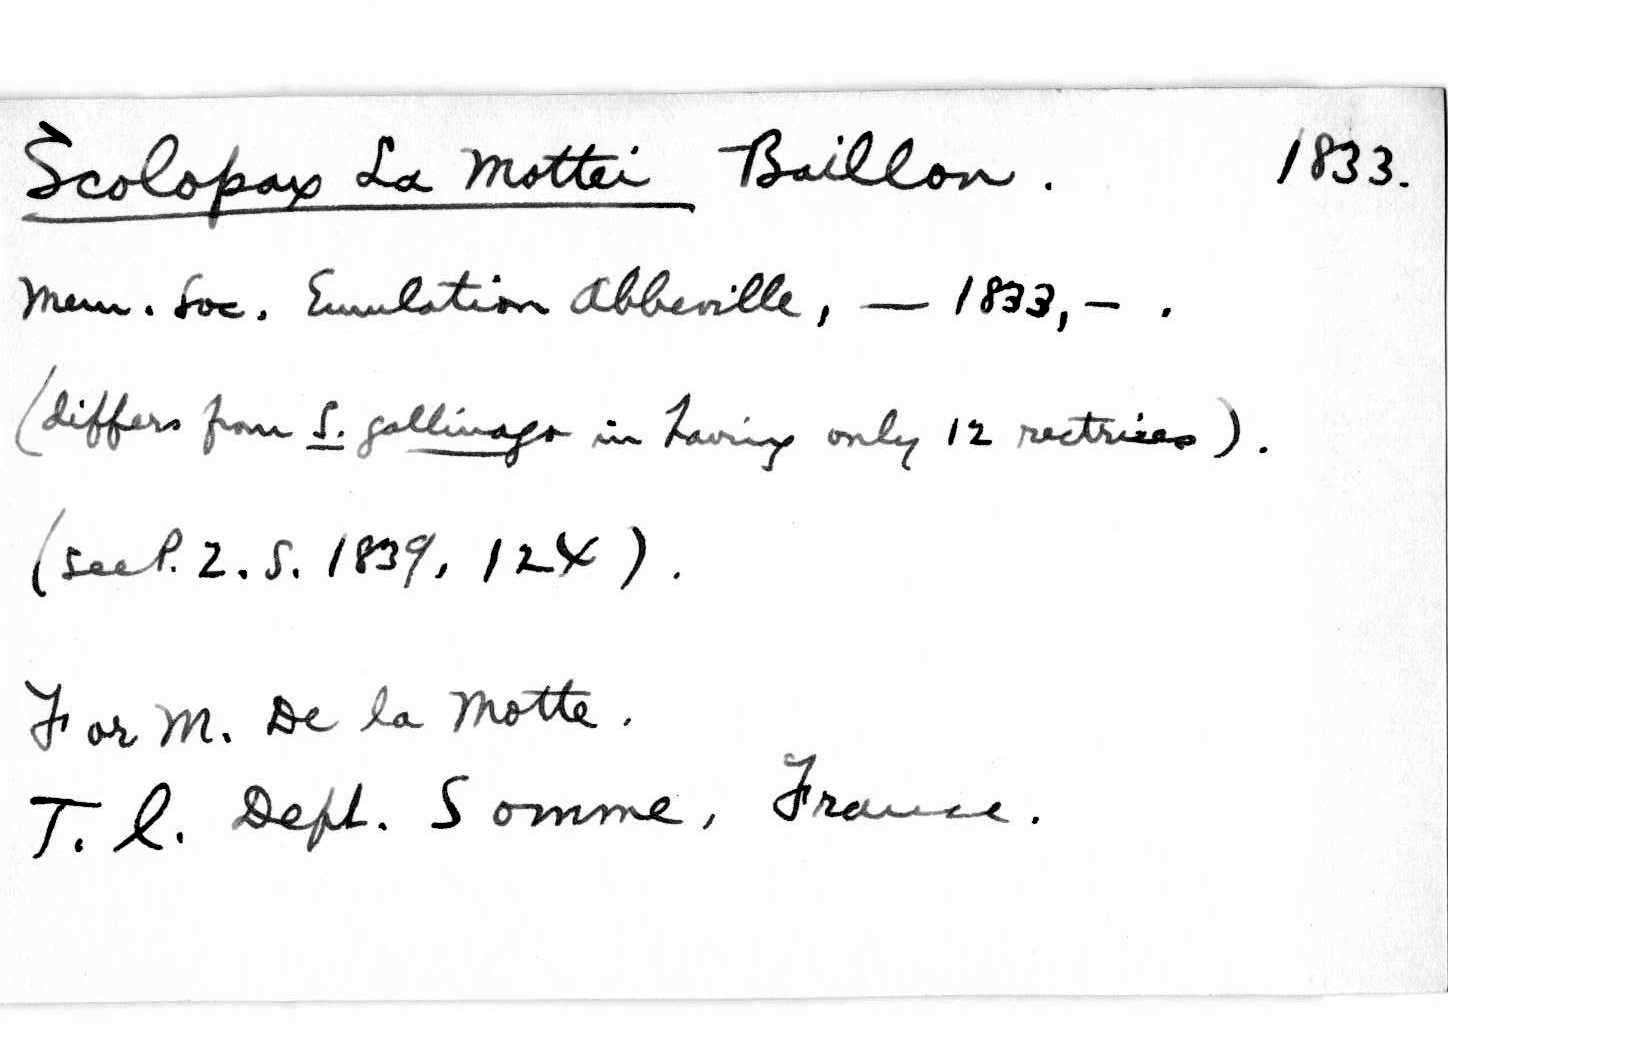 Scolopax La Mottei Baillon. 1833.
Mem. Soc. Emulation Abbeville, — 1833, – .
(differs from S. gallinago in having only 12 rectrices).
(see P. Z. S. 1839, 124).
For M. De la Motte.
T. l. Dept. Somme, France.